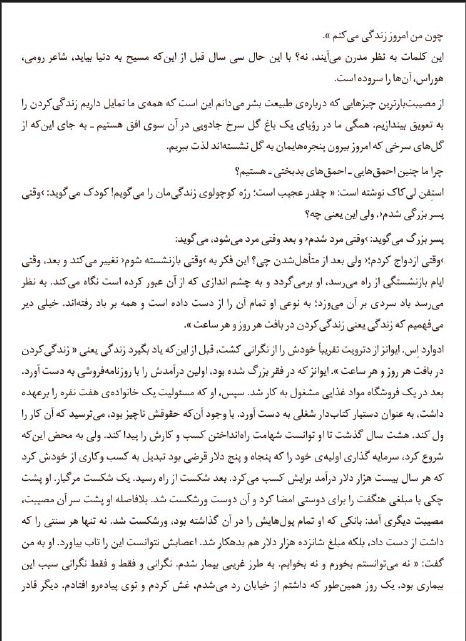 چون من امروز زندگی می‌کنم ».
این کلمات به نظر مدرن می‌آیند، نه؟ با این حال سی سال قبل از این‌که مسیح به دنیا بیاید، شاعر رومی،
هوراس، آن‌ها را سروده است.
از مصیبت‌بارترین چیزهایی که درباره‌ی طبیعت بشر می‌دانم این است که همه‌ی ما تمایل داریم زندگی‌کردن را
به تعویق بیندازیم. همگی ما در رؤیای یک باغ گل سرخ جادویی در آن سوی افق هستیم ـ به جای این‌که از
گل‌های سرخی که امروز بیرون پنجره‌هایمان به گل نشسته‌اند لذت ببریم.
چرا ما چنین احمق‌هایی ـ احمق‌های بدبختی ـ هستیم؟
استِفن لی‌کاک نوشته است: « چقدر عجیب است؛ رژه کوچولوی زندگی‌مان را می‌گویم! کودک می‌گوید: ›وقتی
پسر بزرگی شدم‹. ولی این یعنی چه؟
پسر بزرگ می‌گوید: ›وقتی مرد شدم‹ و بعد وقتی مرد می‌شود، می‌گوید:
›وقتی ازدواج کردم؛‹ ولی بعد از متأهل‌شدن چی؟ این فکر به ›وقتی بازنشسته شوم‹ تغییر می‌کند و بعد، وقتی
ایام بازنشستگی از راه می‌رسد، او برمی‌گردد و به چشم اندازی که از آن عبور کرده است نگاه می‌کند. به نظر
می‌رسد باد سردی بر آن می‌وزد؛ به نوعی او تمام آن را از دست داده است و همه بر باد رفته‌اند. خیلی دیر
می‌فهمیم که زندگی یعنی زندگی‌کردن در بافت هر روز و هر ساعت ».
ادوارد اِس. ایوانز از دترویت تقریباً خودش را از نگرانی کشت، قبل از این‌که یاد بگیرد زندگی یعنی « زندگی‌کردن
در بافت هر روز و هر ساعت ». ایوانز که در فقر بزرگ شده بود، اولین درآمدش را با روزنامه‌فروشی به دست آورد.
بعد در یک فروشگاه مواد غذایی مشغول به کار شد. سپس، او که مسئولیت یک خانواده‌ی هفت نفره را برعهده
داشت، به عنوان دستیار کتاب‌دار شغلی به دست آورد. با وجود آن‌که حقوقش ناچیز بود، می‌ترسید که آن کار را
ول کند. هشت سال گذشت تا او توانست شهامت راه‌انداختن کسب و کارش را پیدا کند. ولی به محض این‌که
شروع کرد، سرمایه گذاری اولیه‌ی خود را که پنجاه و پنج دلار قرضی بود تبدیل به کسب وکاری از خودش کرد
که هر سال بیست هزار دلار درآمد برایش کسب می‌کرد. بعد شکست از راه رسید. یک شکست مرگبار. او پشت
چکی با مبلغی هنگفت را برای دوستی امضا کرد و آن دوست ورشکست شد. بلافاصله او پشت سر آن مصیبت،
مصیبت دیگری آمد: بانکی که او تمام پول‌هایش را در آن گذاشته بود، ورشکست شد. نه تنها هر سنتی را که
داشت از دست داد، بلکه مبلغ شانزده هزار دلار هم بدهکار شد. اعصابش نتوانست این را تاب بیاورد. او به من
گفت: « نه می‌توانستم بخورم و نه بخوابم. به طرز غریبی بیمار شدم. نگرانی و فقط و فقط نگرانی سبب این
بیماری بود. یک روز همین‌طور که داشتم از خیابان رد می‌شدم، غش کردم و توی پیاده‌رو افتادم. دیگر قادر